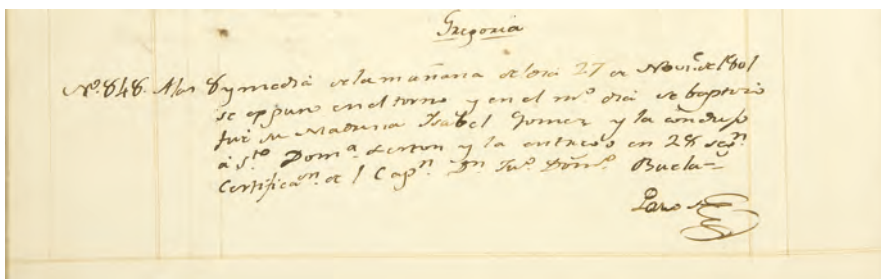 Gregoria
Nº. 848. A las 8 y media de la mañana del dia 27 de Novi.e de 1801
se espuso en el torno y en el m.º dia se baptizó
fue su Madrina Isabel Gomez y la condujo
á S.to Dom.º y la entregó en 28 seg.n
Certifica.n de l Cap.n D.n Ju.º Dom.º